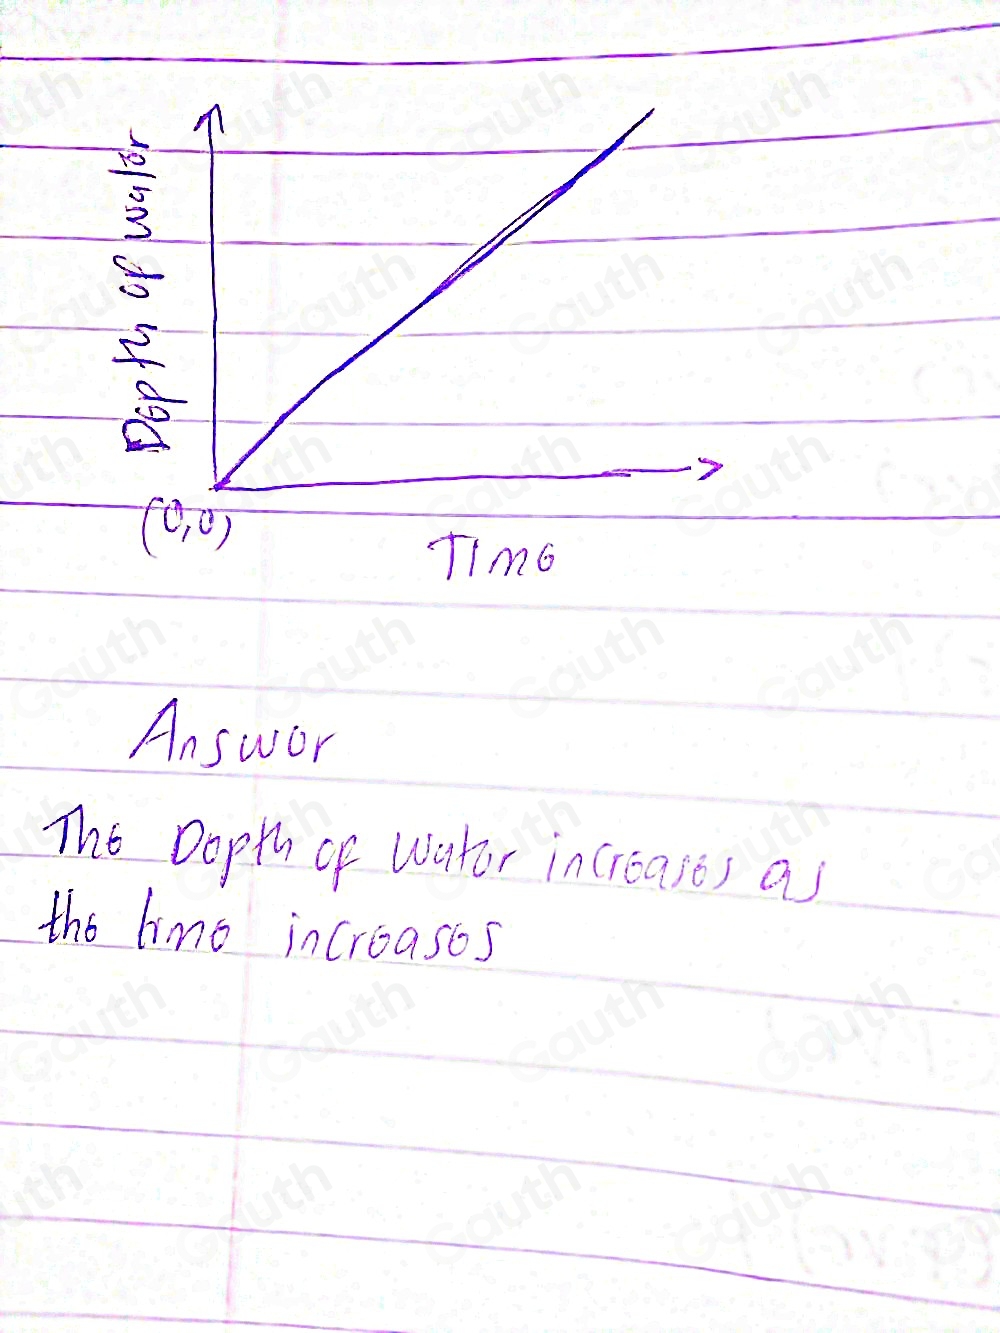 Depth of water
(0,0)
Time
Answer
The Depth of Water increases as
the time increases